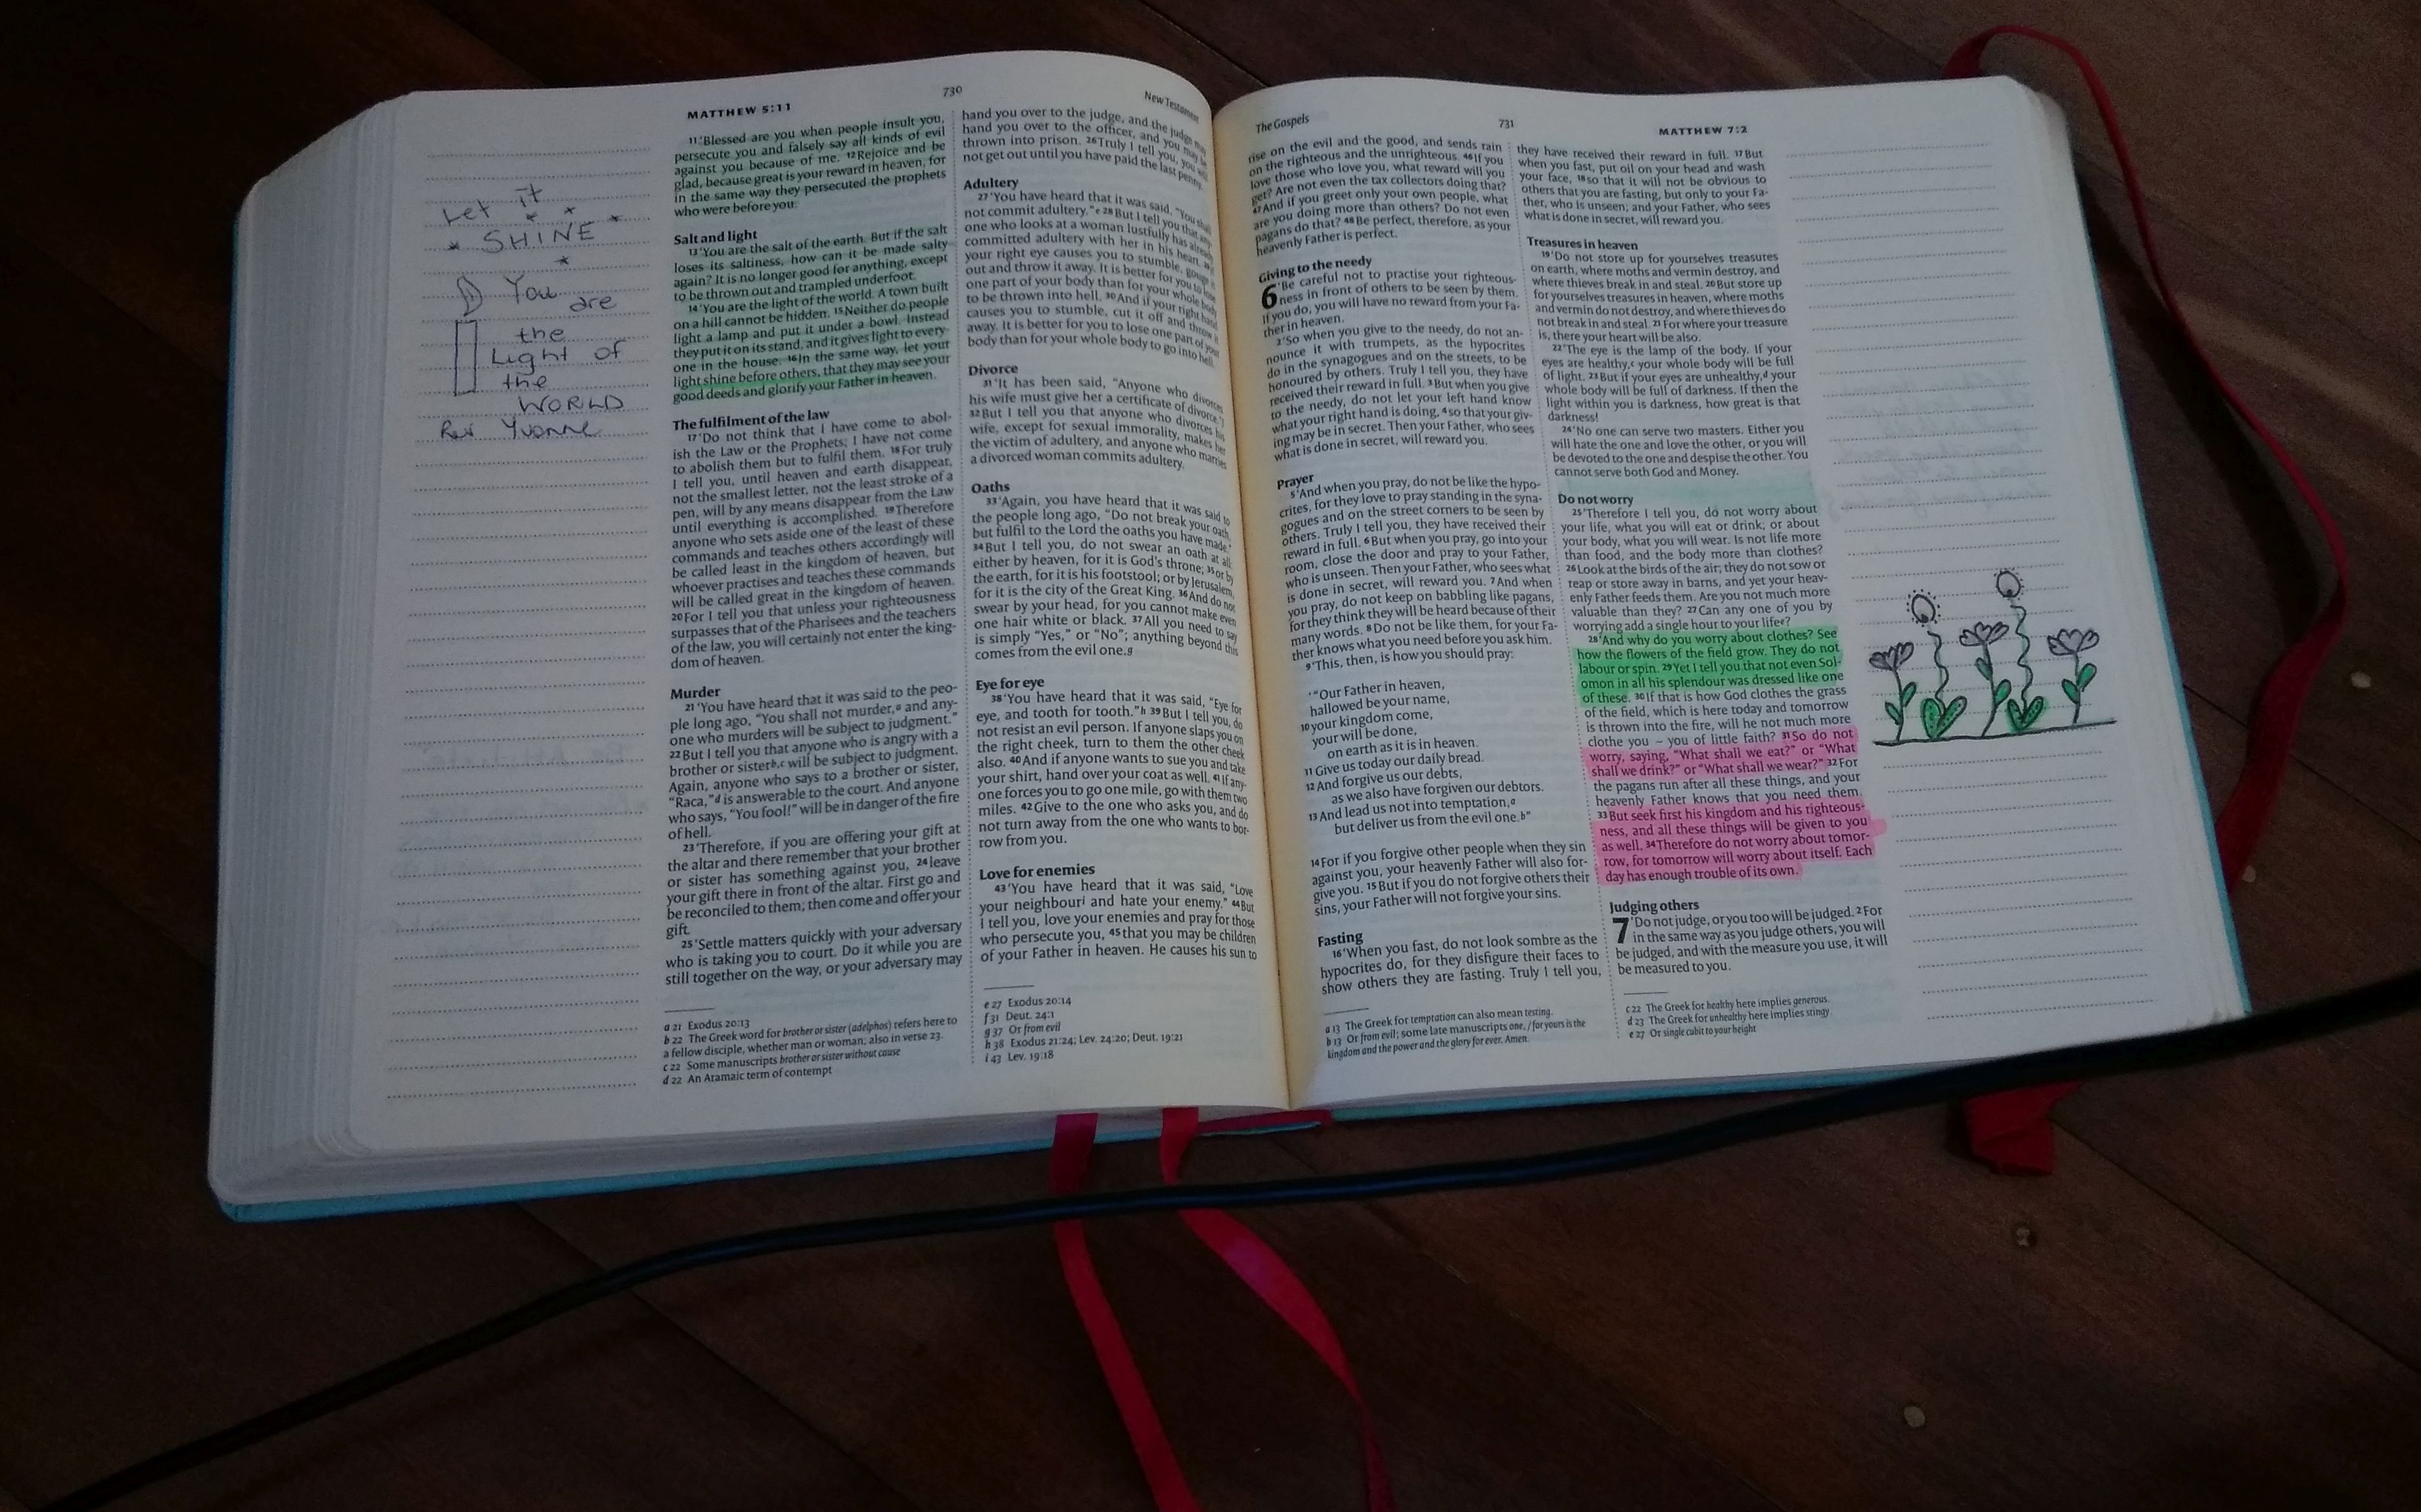 MATTHEW 5:11
730
New Testament
Let it
SHINE
You
are
the
Light of
the
WORLD
Rev Yvonne
11 'Blessed are you when people insult you,
persecute you and falsely say all kinds of evil
against you because of me. 12 Rejoice and be
glad, because great is your reward in heaven, for
in the same way they persecuted the prophets
who were before you.
Salt and light
13 'You are the salt of the earth. But if the salt
loses its saltiness, how can it be made salty
again? It is no longer good for anything, except
to be thrown out and trampled underfoot.
14 'You are the light of the world. A town built
on a hill cannot be hidden. 15 Neither do people
light a lamp and put it under a bowl. Instead
they put it on its stand, and it gives light to every-
one in the house. 16 In the same way, let your
light shine before others, that they may see your
good deeds and glorify your Father in heaven.
The fulfilment of the law
17 'Do not think that I have come to abol-
ish the Law or the Prophets; I have not come
to abolish them but to fulfil them. 18 For truly
I tell you, until heaven and earth disappear,
not the smallest letter, not the least stroke of a
pen, will by any means disappear from the Law
until everything is accomplished. 19 Therefore
anyone who sets aside one of the least of these
commands and teaches others accordingly will
be called least in the kingdom of heaven, but
whoever practises and teaches these commands
will be called great in the kingdom of heaven.
20 For I tell you that unless your righteousness
surpasses that of the Pharisees and the teachers
of the law, you will certainly not enter the king-
dom of heaven.
Murder
21 'You have heard that it was said to the peo-
ple long ago, "You shall not murder,a and any-
one who murders will be subject to judgment."
22 But I tell you that anyone who is angry with a
brother or sisterb,c will be subject to judgment.
Again, anyone who says to a brother or sister,
"Raca,"d is answerable to the court. And anyone
who says, "You fool!" will be in danger of the fire
of hell.
23 'Therefore, if you are offering your gift at
the altar and there remember that your brother
or sister has something against you, 24 leave
your gift there in front of the altar. First go and
be reconciled to them; then come and offer your
gift.
25 'Settle matters quickly with your adversary
who is taking you to court. Do it while you are
still together on the way, or your adversary may
a 21 Exodus 20:13
b 22 The Greek word for brother or sister (adelphos) refers here to
a fellow disciple, whether man or woman; also in verse 23.
c 22 Some manuscripts brother or sister without cause
d 22 An Aramaic term of contempt
hand you over to the judge, and the judge may
hand you over to the officer, and you may be
thrown into prison. 26 Truly I tell you, you will
not get out until you have paid the last penny.
Adultery
27 'You have heard that it was said, "You shall
not commit adultery."e 28 But I tell you that any-
one who looks at a woman lustfully has already
committed adultery with her in his heart. 29 If
your right eye causes you to stumble, gouge it
out and throw it away. It is better for you to lose
one part of your body than for your whole body
to be thrown into hell. 30 And if your right hand
causes you to stumble, cut it off and throw it
away. It is better for you to lose one part of your
body than for your whole body to go into hell.
Divorce
31 'It has been said, "Anyone who divorces
his wife must give her a certificate of divorce."f
32 But I tell you that anyone who divorces his
wife, except for sexual immorality, makes her
the victim of adultery, and anyone who marries
a divorced woman commits adultery.
Oaths
33 'Again, you have heard that it was said to
the people long ago, "Do not break your oath,
but fulfil to the Lord the oaths you have made."
34 But I tell you, do not swear an oath at all:
either by heaven, for it is God's throne; 35 or by
the earth, for it is his footstool; or by Jerusalem,
for it is the city of the Great King. 36 And do not
swear by your head, for you cannot make even
one hair white or black. 37 All you need to say
is simply "Yes," or "No"; anything beyond this
comes from the evil one.g
Eye for eye
38 'You have heard that it was said, "Eye for
eye, and tooth for tooth."h 39 But I tell you, do
not resist an evil person. If anyone slaps you on
the right cheek, turn to them the other cheek
also. 40 And if anyone wants to sue you and take
your shirt, hand over your coat as well. 41 If any-
one forces you to go one mile, go with them two
miles. 42 Give to the one who asks you, and do
not turn away from the one who wants to bor-
row from you.
Love for enemies
43 'You have heard that it was said, "Love
your neighbouri and hate your enemy." 44 But
I tell you, love your enemies and pray for those
who persecute you, 45 that you may be children
of your Father in heaven. He causes his sun to
e 27 Exodus 20:14
f 31 Deut. 24:1
g 37 Or from evil
h 38 Exodus 21:24; Lev. 24:20; Deut. 19:21
i 43 Lev. 19:18
The Gospels
731
MATTHEW 7:2
rise on the evil and the good, and sends rain
on the righteous and the unrighteous. 46 If you
love those who love you, what reward will you
get? Are not even the tax collectors doing that?
47 And if you greet only your own people, what
are you doing more than others? Do not even
pagans do that? 48 Be perfect, therefore, as your
heavenly Father is perfect.
Giving to the needy
6 'Be careful not to practise your righteous-
ness in front of others to be seen by them.
If you do, you will have no reward from your Fa-
ther in heaven.
2 'So when you give to the needy, do not an-
nounce it with trumpets, as the hypocrites
do in the synagogues and on the streets, to be
honoured by others. Truly I tell you, they have
received their reward in full. 3 But when you give
to the needy, do not let your left hand know
what your right hand is doing, 4 so that your giv-
ing may be in secret. Then your Father, who sees
what is done in secret, will reward you.
Prayer
5 'And when you pray, do not be like the hypo-
crites, for they love to pray standing in the syna-
gogues and on the street corners to be seen by
others. Truly I tell you, they have received their
reward in full. 6 But when you pray, go into your
room, close the door and pray to your Father,
who is unseen. Then your Father, who sees what
is done in secret, will reward you. 7 And when
you pray, do not keep on babbling like pagans,
for they think they will be heard because of their
many words. 8 Do not be like them, for your Fa-
ther knows what you need before you ask him.
9 'This, then, is how you should pray:
'"Our Father in heaven,
hallowed be your name,
10 your kingdom come,
your will be done,
on earth as it is in heaven.
11 Give us today our daily bread.
12 And forgive us our debts,
as we also have forgiven our debtors.
13 And lead us not into temptation,a
but deliver us from the evil one.b"
14 For if you forgive other people when they sin
against you, your heavenly Father will also for-
give you. 15 But if you do not forgive others their
sins, your Father will not forgive your sins.
Fasting
16 'When you fast, do not look sombre as the
hypocrites do, for they disfigure their faces to
show others they are fasting. Truly I tell you,
a 13 The Greek for temptation can also mean testing.
b 13 Or from evil; some late manuscripts one, / for yours is the
kingdom and the power and the glory for ever. Amen.
they have received their reward in full. 17 But
when you fast, put oil on your head and wash
your face, 18 so that it will not be obvious to
others that you are fasting, but only to your Fa-
ther, who is unseen; and your Father, who sees
what is done in secret, will reward you.
Treasures in heaven
19 'Do not store up for yourselves treasures
on earth, where moths and vermin destroy, and
where thieves break in and steal. 20 But store up
for yourselves treasures in heaven, where moths
and vermin do not destroy, and where thieves do
not break in and steal. 21 For where your treasure
is, there your heart will be also.
22 'The eye is the lamp of the body. If your
eyes are healthy,c your whole body will be full
of light. 23 But if your eyes are unhealthy,d your
whole body will be full of darkness. If then the
light within you is darkness, how great is that
darkness!
24 'No one can serve two masters. Either you
will hate the one and love the other, or you will
be devoted to the one and despise the other. You
cannot serve both God and Money.
Do not worry
25 'Therefore I tell you, do not worry about
your life, what you will eat or drink; or about
your body, what you will wear. Is not life more
than food, and the body more than clothes?
26 Look at the birds of the air; they do not sow or
reap or store away in barns, and yet your heav-
enly Father feeds them. Are you not much more
valuable than they? 27 Can any one of you by
worrying add a single hour to your lifee?
28 'And why do you worry about clothes? See
how the flowers of the field grow. They do not
labour or spin. 29 Yet I tell you that not even Sol-
omon in all his splendour was dressed like one
of these. 30 If that is how God clothes the grass
of the field, which is here today and tomorrow
is thrown into the fire, will he not much more
clothe you – you of little faith? 31 So do not
worry, saying, "What shall we eat?" or "What
shall we drink?" or "What shall we wear?" 32 For
the pagans run after all these things, and your
heavenly Father knows that you need them.
33 But seek first his kingdom and his righteous-
ness, and all these things will be given to you
as well. 34 Therefore do not worry about tomor-
row, for tomorrow will worry about itself. Each
day has enough trouble of its own.
Judging others
7 'Do not judge, or you too will be judged. 2 For
in the same way as you judge others, you will
be judged, and with the measure you use, it will
be measured to you.
c 22 The Greek for healthy here implies generous.
d 23 The Greek for unhealthy here implies stingy.
e 27 Or single cubit to your height